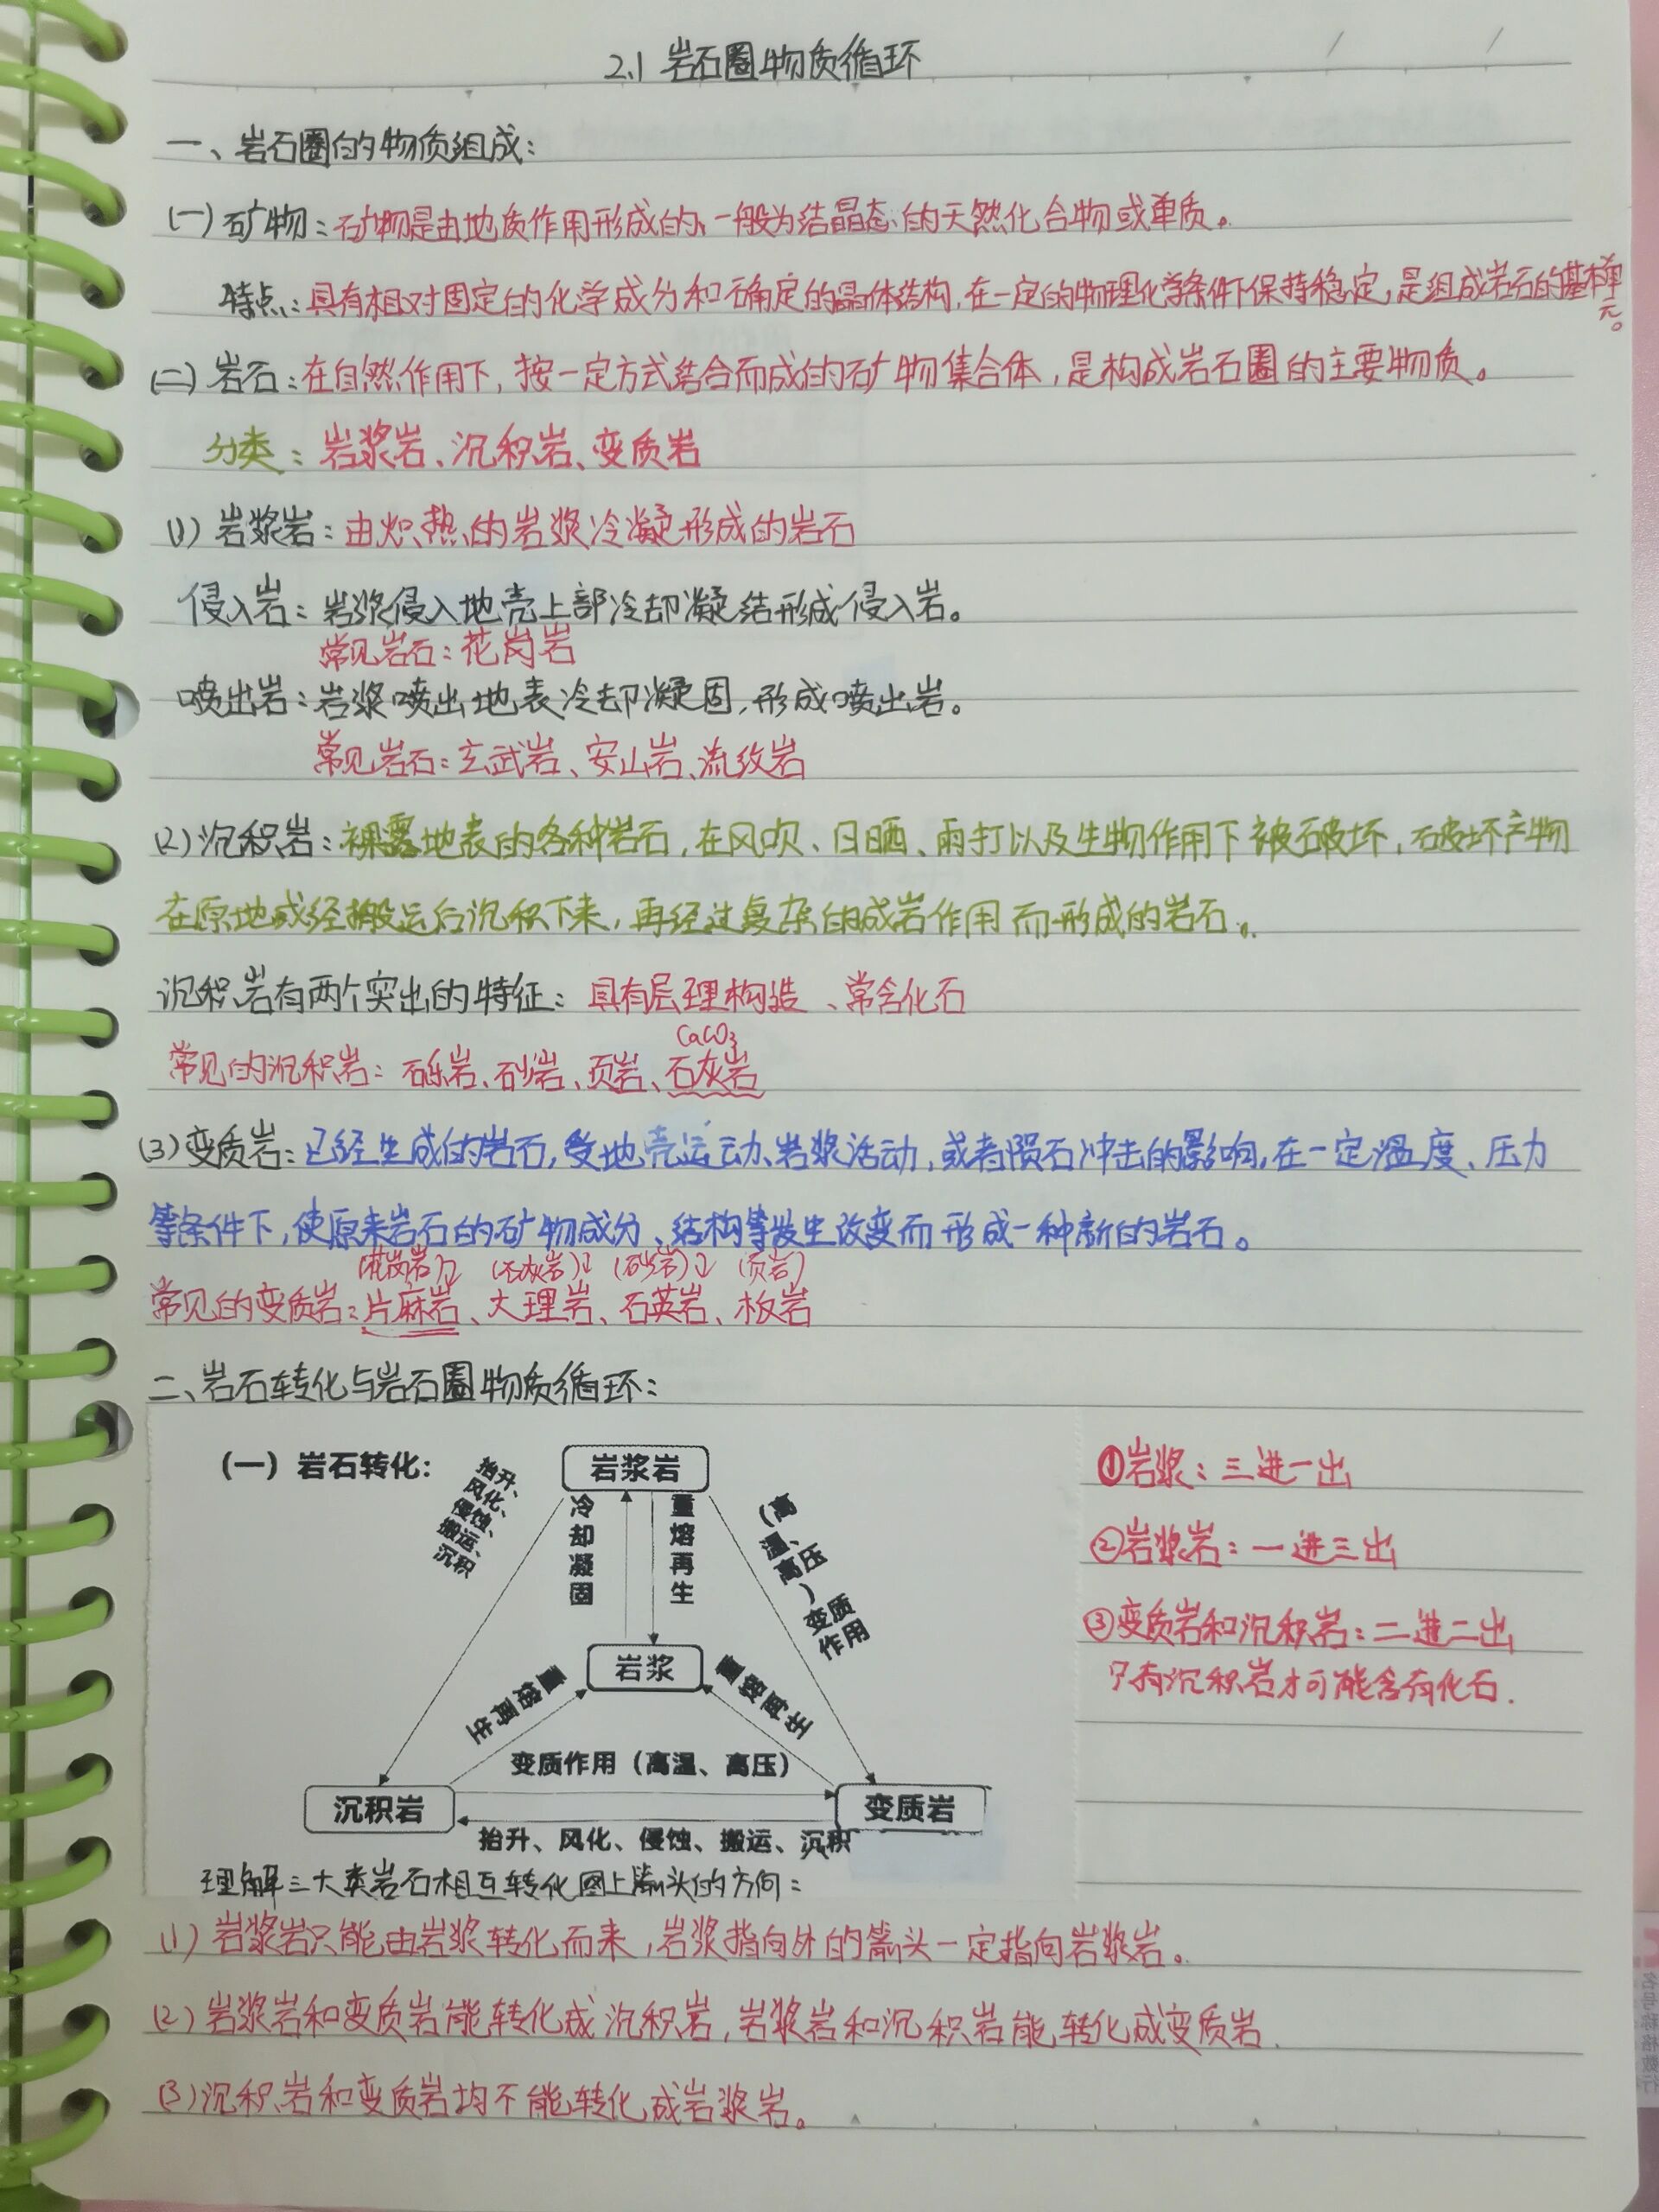 2.1 岩石圈物质循环
一、岩石圈的物质组成：
(一) 矿物：矿物是由地质作用形成的、一般为结晶态的天然化合物或单质。
特点：具有相对固定的化学成分和确定的晶体结构，在一定的物理化学条件下保持稳定，是组成岩石的基本单元。
(二) 岩石：在自然作用下，按一定方式结合而成的矿物集合体，是构成岩石圈的主要物质。
分类：岩浆岩、沉积岩、变质岩
(1) 岩浆岩：由炽热的岩浆冷凝形成的岩石
侵入岩：岩浆侵入地壳上部冷却凝结形成侵入岩。
常见岩石：花岗岩
喷出岩：岩浆喷出地表冷却凝固，形成喷出岩。
常见岩石：玄武岩、安山岩、流纹岩
(2) 沉积岩：裸露地表的各种岩石，在风吹、日晒、雨打以及生物作用下被破坏，破坏产物
在原地或经搬运后沉积下来，再经过复杂的成岩作用而形成的岩石。
沉积岩有两个突出的特征：具有层理构造、常含化石
CaCO₃
常见的沉积岩：砾岩、砂岩、页岩、石灰岩
(3) 变质岩：已经生成的岩石，受地壳运动、岩浆活动，或者陨石冲击的影响，在一定温度、压力
等条件下，使原来岩石的矿物成分、结构等发生改变而形成一种新的岩石。
(花岗岩)↓ (石灰岩)↓ (砂岩)↓ (页岩)
常见的变质岩：片麻岩、大理岩、石英岩、板岩
二、岩石转化与岩石圈物质循环：
(一) 岩石转化：
岩浆岩
抬升、风化、侵蚀、搬运、沉积
冷却凝固
重熔再生
(高温、高压)变质作用
岩浆
重熔再生
重熔再生
变质作用（高温、高压）
沉积岩
变质岩
抬升、风化、侵蚀、搬运、沉积
①岩浆：三进一出
②岩浆岩：一进三出
③变质岩和沉积岩：二进二出
只有沉积岩才可能含有化石.
理解三大类岩石相互转化图上箭头的方向：
(1) 岩浆岩只能由岩浆转化而来，岩浆指向外的箭头一定指向岩浆岩。
(2) 岩浆岩和变质岩能转化成沉积岩，岩浆岩和沉积岩能转化成变质岩.
(3) 沉积岩和变质岩均不能转化成岩浆岩。